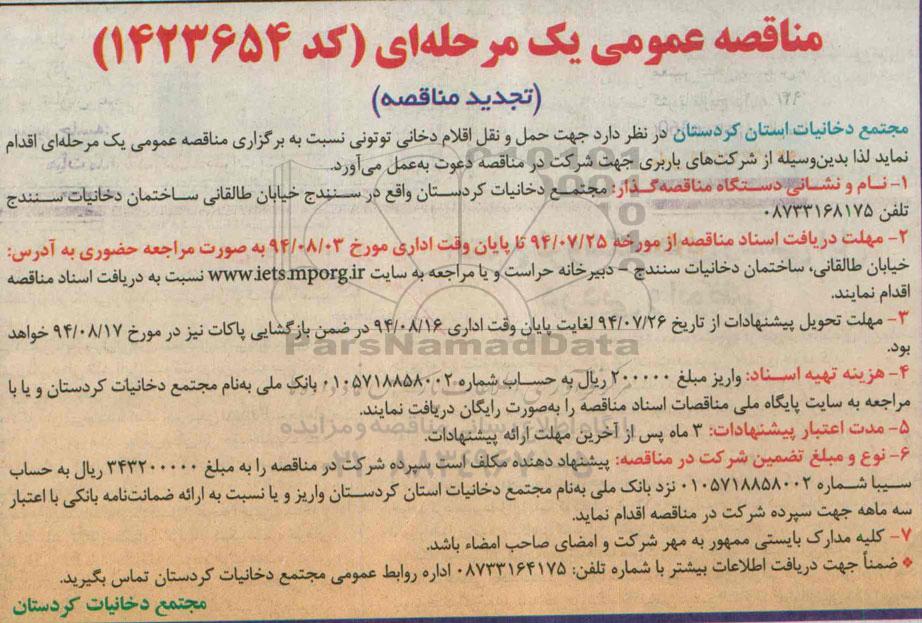 مناقصه عمومی یک مرحله‌ای (کد ۱۴۲۳۶۵۴)
(تجدید مناقصه)
مجتمع دخانیات استان کردستان در نظر دارد جهت حمل و نقل اقلام دخانی توتونی نسبت به برگزاری مناقصه عمومی یک مرحله‌ای اقدام
نماید لذا بدین‌وسیله از شرکت‌های باربری جهت شرکت در مناقصه دعوت به‌عمل می‌آورد.
۱- نام و نشانی دستگاه مناقصه‌گذار: مجتمع دخانیات کردستان واقع در سنندج خیابان طالقانی ساختمان دخانیات سنندج
تلفن ۰۸۷۳۳۱۶۸۱۷۵
۲- مهلت دریافت اسناد مناقصه از مورخه ۹۴/۰۷/۲۵ تا پایان وقت اداری مورخ ۹۴/۰۸/۰۳ به صورت مراجعه حضوری به آدرس:
خیابان طالقانی، ساختمان دخانیات سنندج - دبیرخانه حراست و یا مراجعه به سایت www.iets.mporg.ir نسبت به دریافت اسناد مناقصه
اقدام نمایند.
۳- مهلت تحویل پیشنهادات از تاریخ ۹۴/۰۷/۲۶ لغایت پایان وقت اداری ۹۴/۰۸/۱۶ در ضمن بازگشایی پاکات نیز در مورخ ۹۴/۰۸/۱۷ خواهد
بود.
ParsNamadData
۴- هزینه تهیه اسناد: واریز مبلغ ۲۰۰۰۰۰ ریال به حساب شماره ۰۱۰۵۷۱۸۸۵۸۰۰۲ بانک ملی به‌نام مجتمع دخانیات کردستان و یا با
مراجعه به سایت پایگاه ملی مناقصات اسناد مناقصه را به‌صورت رایگان دریافت نمایند.
۵- مدت اعتبار پیشنهادات: ۳ ماه پس از آخرین مهلت ارائه پیشنهادات.
۶- نوع و مبلغ تضمین شرکت در مناقصه: پیشنهاد دهنده مکلف است سپرده شرکت در مناقصه را به مبلغ ۳۴۳۲۰۰۰۰۰ ریال به حساب
سیبا شماره ۰۱۰۵۷۱۸۸۵۸۰۰۲ نزد بانک ملی به‌نام مجتمع دخانیات استان کردستان واریز و یا نسبت به ارائه ضمانت‌نامه بانکی با اعتبار
سه ماهه جهت سپرده شرکت در مناقصه اقدام نماید.
۷- کلیه مدارک بایستی ممهور به مهر شرکت و امضای صاحب امضاء باشد.
ضمناً جهت دریافت اطلاعات بیشتر با شماره تلفن: ۰۸۷۳۳۱۶۴۱۷۵ اداره روابط عمومی مجتمع دخانیات کردستان تماس بگیرید.
مجتمع دخانیات کردستان